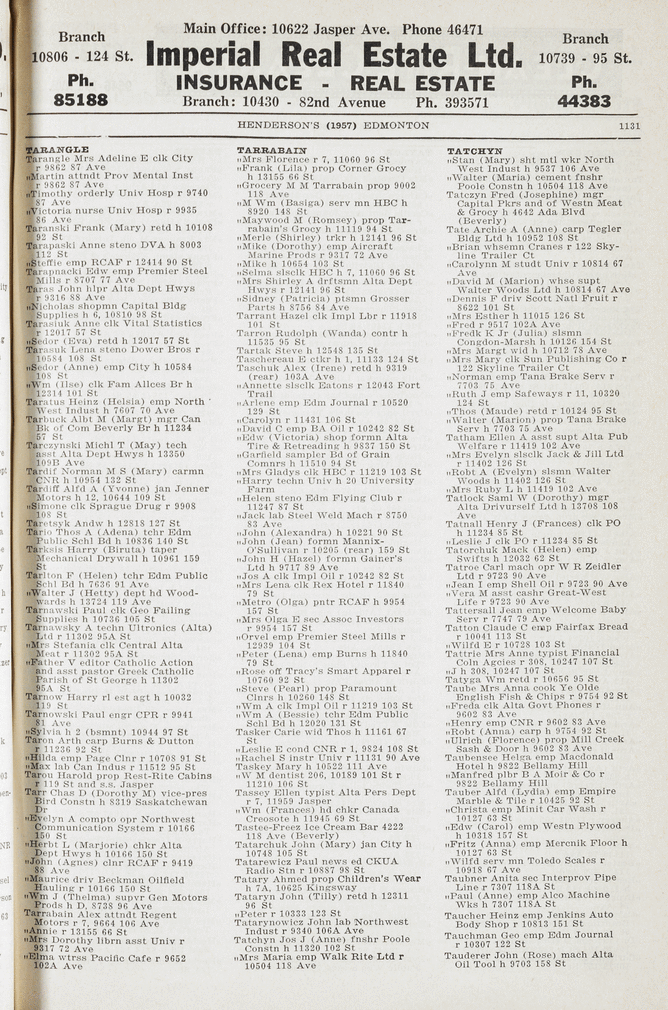 Main Office: 10622 Jasper Ave. Phone 46471
Branch
10806 - 124 St.
Ph.
85188
Imperial Real Estate Ltd.
INSURANCE - REAL ESTATE
Branch: 10430 - 82nd Avenue Ph. 393571
Branch
10739 - 95 St.
Ph.
44383
HENDERSON'S (1957) EDMONTON 1131
TARANGLE
Tarangle Mrs Adeline E clk City
r 9862 87 Ave
„Martin attndt Prov Mental Inst
r 9862 87 Ave
„Timothy orderly Univ Hosp r 9740
87 Ave
„Victoria nurse Univ Hosp r 9935
86 Ave
Taranski Frank (Mary) retd h 10108
92 St
Tarapaski Anne steno DVA h 8003
112 St
„Steffie emp RCAF r 12414 90 St
Tarapnacki Edw emp Premier Steel
Mills r 8707 77 Ave
Taras John hlpr Alta Dept Hwys
r 9316 88 Ave
„Nicholas shopmn Capital Bldg
Supplies h 6, 10810 98 St
Tarasiuk Anne clk Vital Statistics
r 12017 57 St
„Sedor (Eva) retd h 12017 57 St
Tarasuk Lena steno Dower Bros r
10584 108 St
„Sedor (Anne) emp City h 10584
108 St
„Wm (Ilse) clk Fam Allces Br h
12314 101 St
Taratus Heinz (Helsia) emp North
West Indust h 7607 70 Ave
Tarbuck Albt M (Margt) mgr Can
Bk of Com Beverly Br h 11234
57 St
Tarczynski Michl T (May) tech
asst Alta Dept Hwys h 13350
109B Ave
Tardif Norman M S (Mary) carmn
CNR h 10954 132 St
Tardiff Alfd A (Yvonne) jan Jenner
Motors h 12, 10644 109 St
„Simone clk Sprague Drug r 9908
108 St
Taretsyk Andw h 12818 127 St
Tario Thos A (Adena) tchr Edm
Public Schl Bd h 10836 140 St
Tarksis Harry (Biruta) taper
Mechanical Drywall h 10961 159
St
Tarlton F (Helen) tchr Edm Public
Schl Bd h 7636 91 Ave
„Walter J (Hetty) dept hd Wood-
wards h 13724 119 Ave
Tarnawski Paul clk Geo Failing
Supplies h 10736 105 St
Tarnawsky A techn Ultronics (Alta)
Ltd r 11302 95A St
„Mrs Stefania clk Central Alta
Meat r 11302 95A St
„Father V editor Catholic Action
and asst pastor Greek Catholic
Parish of St George h 11302
95A St
Tarnow Harry rl est agt h 10032
119 St
Tarnowski Paul engr CPR r 9941
81 Ave
„Sylvia h 2 (bsmnt) 10944 97 St
Taron Arth carp Burns & Dutton
r 11236 92 St
„Hilda emp Page Clnr r 10708 91 St
„Max lab Can Indus r 11512 95 St
Tarou Harold prop Rest-Rite Cabins
r 119 St and s.s. Jasper
Tarr Chas D (Dorothy M) vice-pres
Bird Constn h 8319 Saskatchewan
Dr
„Evelyn A compto opr Northwest
Communication System r 10166
150 St
„Herbt L (Marjorie) chkr Alta
Dept Hwys h 10166 150 St
„John (Agnes) clnr RCAF r 9419
88 Ave
„Maurice driv Beckman Oilfield
Hauling r 10166 150 St
„Wm J (Thelma) supvr Gen Motors
Prods h D, 8738 96 Ave
Tarrabain Alex attndt Regent
Motors r 7, 9664 106 Ave
„Annie r 13155 66 St
„Mrs Dorothy librn asst Univ r
9317 72 Ave
„Elma wtrss Pacific Cafe r 9652
102A Ave
TARRABAIN
„Mrs Florence r 7, 11060 96 St
„Frank (Lila) prop Corner Grocy
h 13155 66 St
„Grocery M M Tarrabain prop 9002
118 Ave
„M Wm (Basiga) serv mn HBC h
8920 148 St
„Maywood M (Romsey) prop Tar-
rabain's Grocy h 11119 94 St
„Merle (Shirley) trkr h 12141 96 St
„Mike (Dorothy) emp Aircraft
Marine Prods r 9317 72 Ave
„Mike h 10654 103 St
„Selma slsclk HBC h 7, 11060 96 St
„Mrs Shirley A drftsmn Alta Dept
Hwys r 12141 96 St
„Sidney (Patricia) ptsmn Grosser
Parts h 8756 84 Ave
Tarrant Hazel clk Impl Lbr r 11918
101 St
Tarron Rudolph (Wanda) contr h
11535 95 St
Tartak Steve h 12548 135 St
Taschereau E ctkr h 1, 11133 124 St
Taschuk Alex (Irene) retd h 9319
(rear) 103A Ave
„Annette slsclk Eatons r 12043 Fort
Trail
„Arlene emp Edm Journal r 10520
129 St
„Carolyn r 11431 106 St
„David C emp BA Oil r 10242 82 St
„Edw (Victoria) shop formn Alta
Tire & Retreading r 9837 150 St
„Garfield sampler Bd of Grain
Comnrs h 11510 94 St
„Mrs Gladys clk HBC r 11219 103 St
„Harry techn Univ h 20 University
Farm
„Helen steno Edm Flying Club r
11247 87 St
„Jack lab Steel Weld Mach r 8750
83 Ave
„John (Alexandra) h 10221 90 St
„John (Jean) formn Mannix-
O'Sullivan r 10205 (rear) 159 St
„John H (Hazel) formn Gainer's
Ltd h 9717 89 Ave
„Jos A clk Impl Oil r 10242 82 St
„Mrs Lena clk Rex Hotel r 11840
79 St
„Metro (Olga) pntr RCAF h 9954
157 St
„Mrs Olga E sec Assoc Investors
r 9954 157 St
„Orvel emp Premier Steel Mills r
12939 104 St
„Peter (Lena) emp Burns h 11840
79 St
„Rose off Tracy's Smart Apparel r
10760 92 St
„Steve (Pearl) prop Paramount
Clnrs h 10260 148 St
„Wm A clk Impl Oil r 11219 103 St
„Wm A (Bessie) tchr Edm Public
Schl Bd h 12020 131 St
Tasker Carie wid Thos h 11161 67
St
„Leslie E cond CNR r 1, 9824 108 St
„Rachel S instr Univ r 11131 90 Ave
Taskey Mary h 10522 111 Ave
„W M dentist 206, 10189 101 St r
11210 106 St
Tassey Ellen typist Alta Pers Dept
r 7, 11959 Jasper
„Wm (Frances) hd chkr Canada
Creosote h 11945 69 St
Tastee-Freez Ice Cream Bar 4222
118 Ave (Beverly)
Tatarchuk John (Mary) jan City h
10748 105 St
Tatarewicz Paul news ed CKUA
Radio Stn r 10887 98 St
Tatary Ahmed prop Children's Wear
h 7A, 10625 Kingsway
Tataryn John (Tilly) retd h 12311
96 St
„Peter r 10333 123 St
Tatarynowicz John lab Northwest
Indust r 9340 106A Ave
Tatchyn Jos J (Anne) fnshr Poole
Constn h 11320 102 St
„Mrs Maria emp Walk Rite Ltd r
10504 118 Ave
TATCHYN
„Stan (Mary) sht mtl wkr North
West Indust h 9537 106 Ave
„Walter (Maria) cement fnshr
Poole Constn h 10504 118 Ave
Tatczyn Fred (Josephine) mgr
Capital Pkrs and of Westn Meat
& Grocy h 4642 Ada Blvd
(Beverly)
Tate Archie A (Anne) carp Tegler
Bldg Ltd h 10952 108 St
„Brian whsemn Cranes r 122 Sky-
line Trailer Ct
„Carolynn M studt Univ r 10814 67
Ave
„David M (Marion) whse supt
Walter Woods Ltd h 10814 67 Ave
„Dennis F driv Scott Natl Fruit r
8622 101 St
„Mrs Esther h 11015 126 St
„Fred r 9517 102A Ave
„Fredk K Jr (Julia) slsmn
Congdon-Marsh h 10126 154 St
„Mrs Margt wid h 10712 78 Ave
„Mrs Mary clk Sun Publishing Co r
122 Skyline Trailer Ct
„Norman emp Tana Brake Serv r
7703 75 Ave
„Ruth J emp Safeways r 11, 10320
124 St
„Thos (Maude) retd h 10124 95 St
„Walter (Marion) prop Tana Brake
Serv h 7703 75 Ave
Tatham Ellen A asst supt Alta Pub
Welfare r 11419 102 Ave
„Mrs Evelyn slsclk Jack & Jill Ltd
r 11402 126 St
„Robt A (Evelyn) slsmn Walter
Woods h 11402 126 St
„Mrs Ruby L h 11419 102 Ave
Tatlock Saml W (Dorothy) mgr
Alta Drivurself Ltd h 13708 108
Ave
Tatnall Henry J (Frances) clk PO
h 11234 85 St
„Leslie J clk PO r 11234 85 St
Tatorchuk Mack (Helen) emp
Swifts h 12032 62 St
Tatroe Carl mach opr W R Zeidler
Ltd r 9723 90 Ave
„Jean I emp Shell Oil r 9723 90 Ave
„Vera M asst cashr Great-West
Life r 9723 90 Ave
Tattersall Jean emp Welcome Baby
Serv r 7747 79 Ave
Tatton Claude C emp Fairfax Bread
r 10041 113 St
„Wilfd E r 10728 103 St
Tattrie Mrs Anne typist Financial
Coln Agcies r 308, 10247 107 St
„J h 308, 10247 107 St
Tatyga Wm retd r 10656 95 St
Taube Mrs Anna cook Ye Olde
English Fish & Chips r 9754 92 St
„Freda clk Alta Govt Phones r
9602 83 Ave
„Henry emp CNR r 9602 83 Ave
„Robt (Anna) carp h 9754 92 St
„Ulrich (Florence) prop Mill Creek
Sash & Door h 9602 83 Ave
Taubensee Helga emp Macdonald
Hotel h 9822 Bellamy Hill
„Manfred plbr B A Moir & Co r
9822 Bellamy Hill
Tauber Alfd (Lydia) emp Empire
Marble & Tile r 10425 92 St
„Christa emp Minit Car Wash r
10127 63 St
„Edw (Carol) emp Westn Plywood
h 10318 157 St
„Fritz (Anna) emp Mercnik Floor h
10127 63 St
„Wilfd serv mn Toledo Scales r
10918 67 Ave
Taubner Anita sec Interprov Pipe
Line r 7307 118A St
„Paul (Anne) emp Alco Machine
Wks h 7307 118A St
Taucher Heinz emp Jenkins Auto
Body Shop r 10813 151 St
Tauchman Geo emp Edm Journal
r 10307 122 St
Tauderer John (Rose) mach Alta
Oil Tool h 9703 158 St